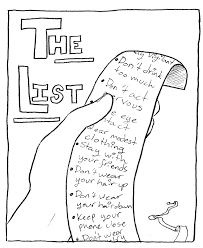 THE
LIST
• Don't drink
too much
• Don't act
nervous
eye
• Wear modest
clothing
• Stay with
your friends
• Don't wear
your hair up
• Don't wear
your hair down
• Keep your
phone close
• Don't wear